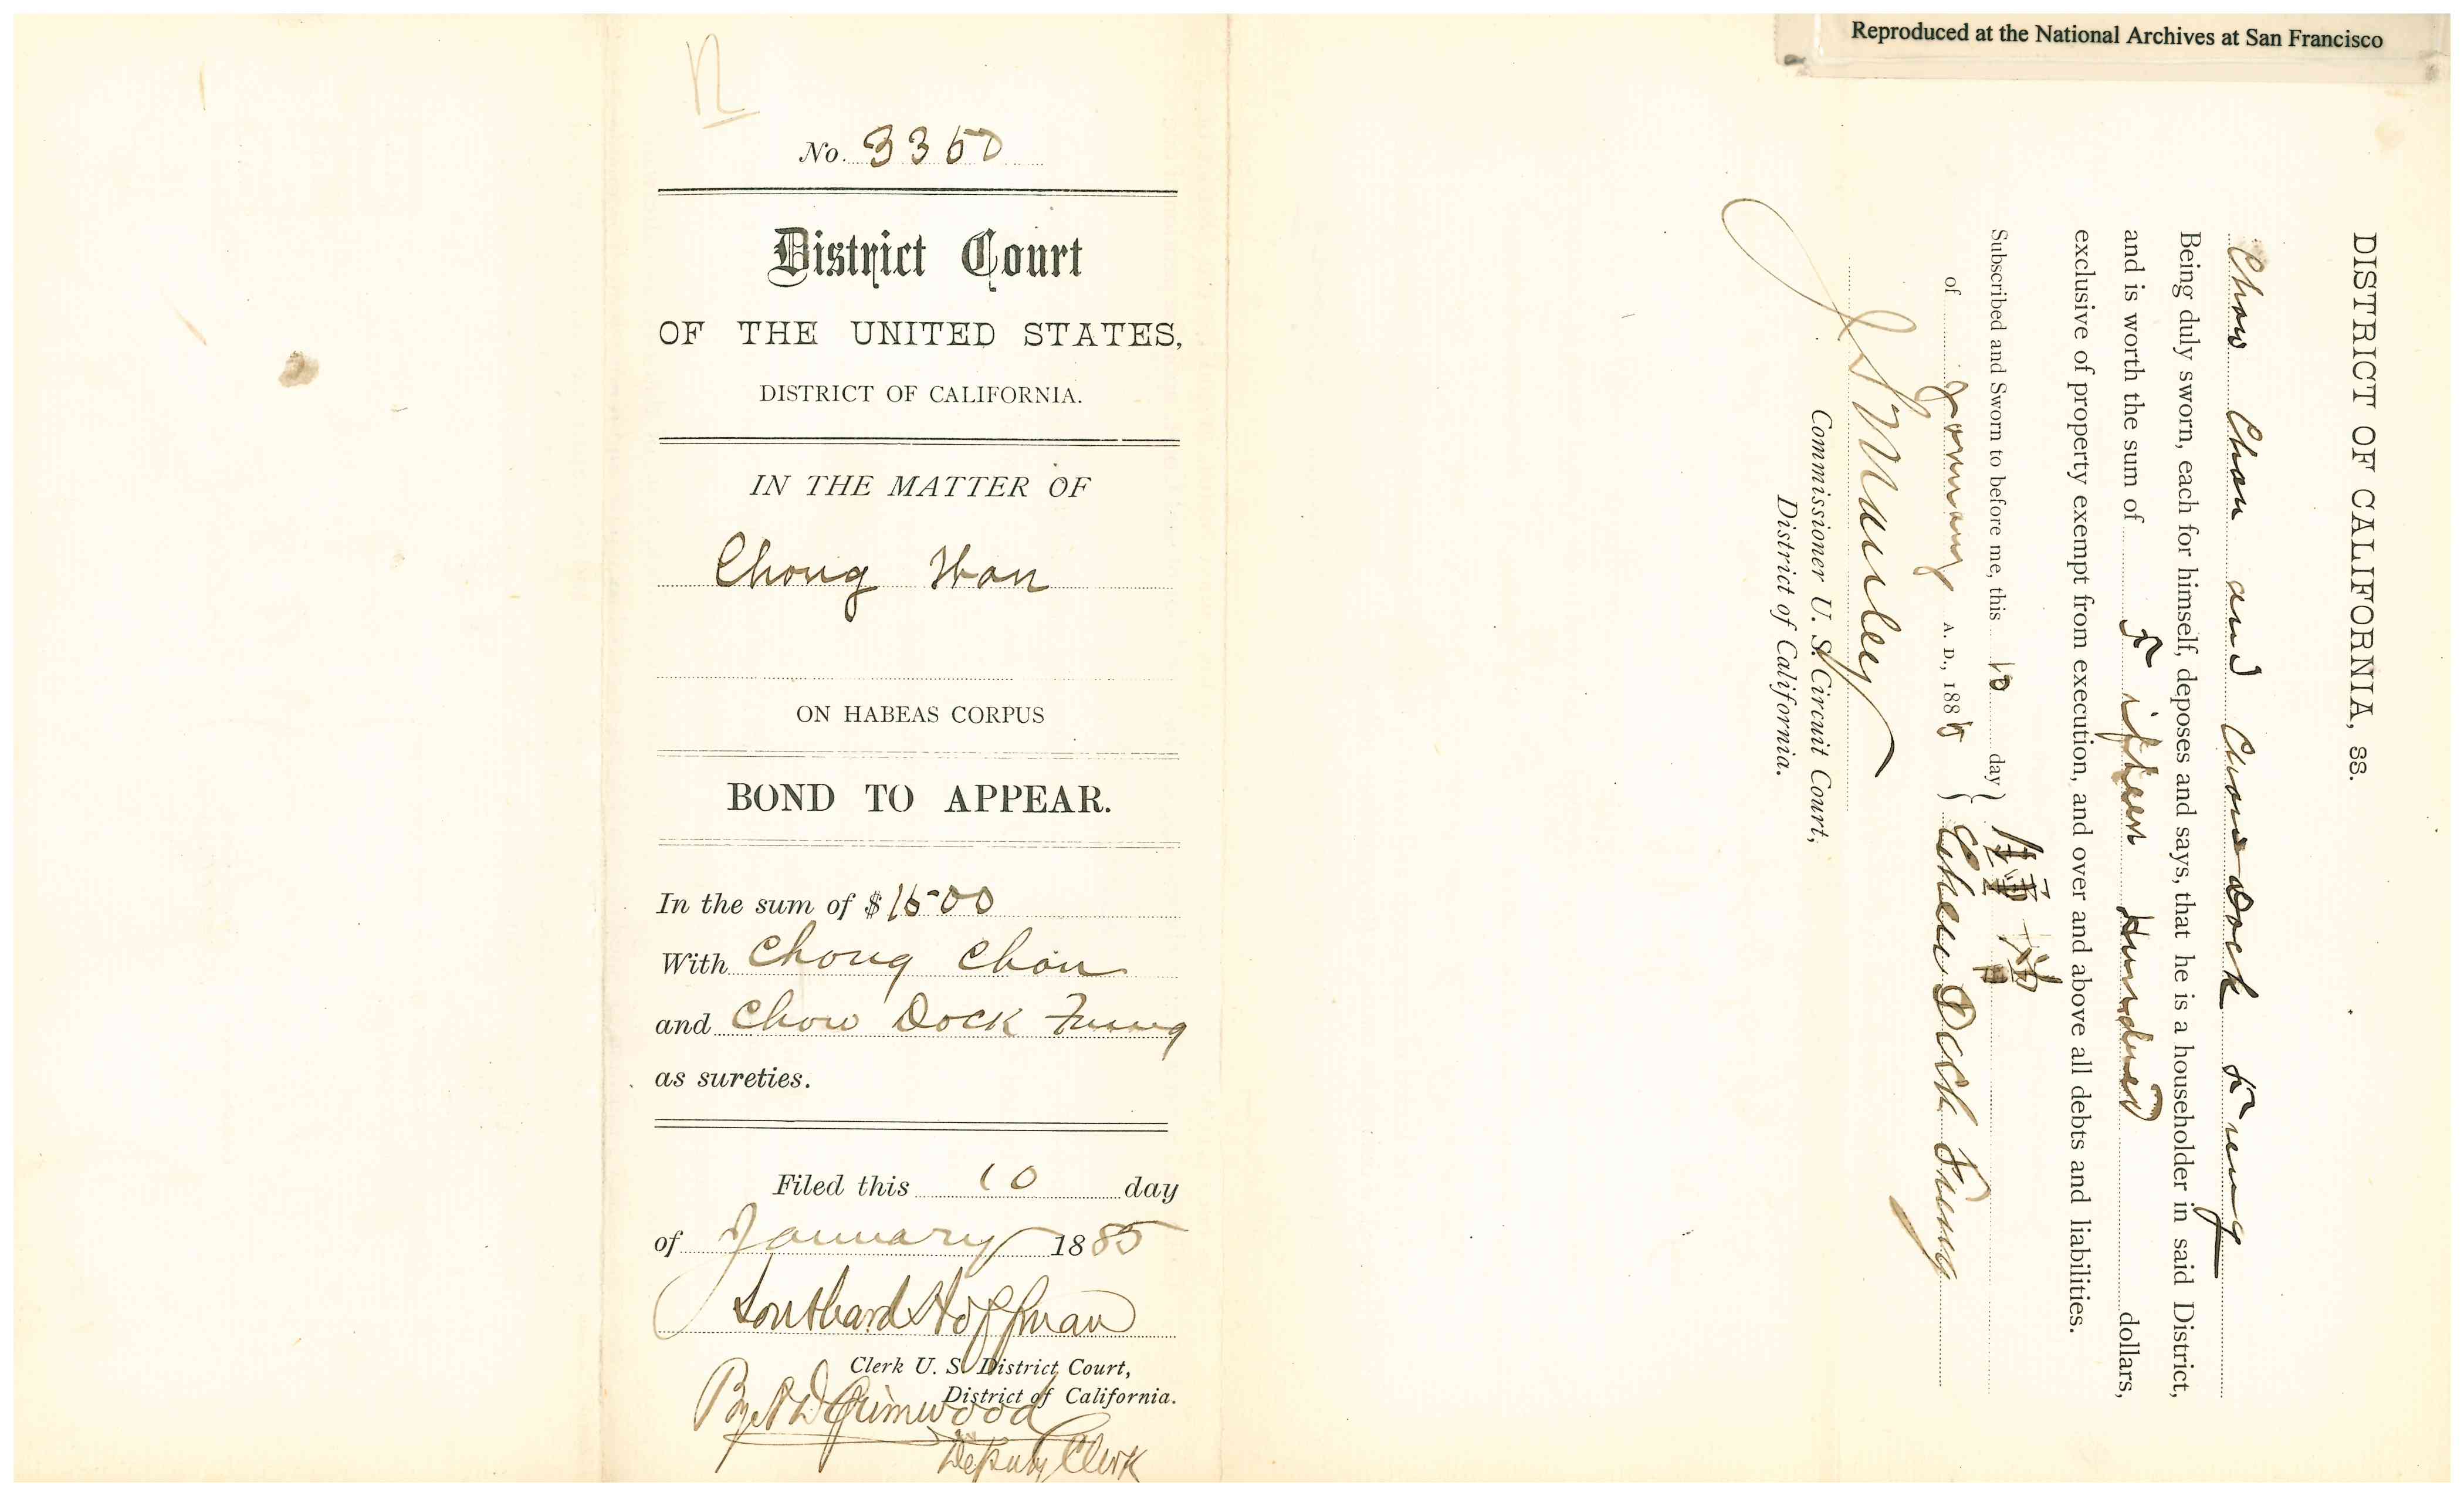 Reproduced at the National Archives at San Francisco
n
No. 3350
District Court
OF THE UNITED STATES,
DISTRICT OF CALIFORNIA.
IN THE MATTER OF
Chong Han
ON HABEAS CORPUS
BOND TO APPEAR.
In the sum of $ 1500
With Chong Chan
and Chow Dock Fung
as sureties.
Filed this 10 day
of January 1885
Southard Hoffman
Clerk U. S. District Court,
District of California.
By A D Grimwood
Deputy Clerk
DISTRICT OF CALIFORNIA, ss.
Chow Chan and Chow Dock Fung
Being duly sworn, each for himself, deposes and says, that he is a householder in said District,
and is worth the sum of Fifteen Hundred dollars,
exclusive of property exempt from execution, and over and above all debts and liabilities.
Subscribed and Sworn to before me, this 10 day
of January A. D., 1885 Chew Dock Fung
J S Manley
Commissioner U. S. Circuit Court,
District of California.